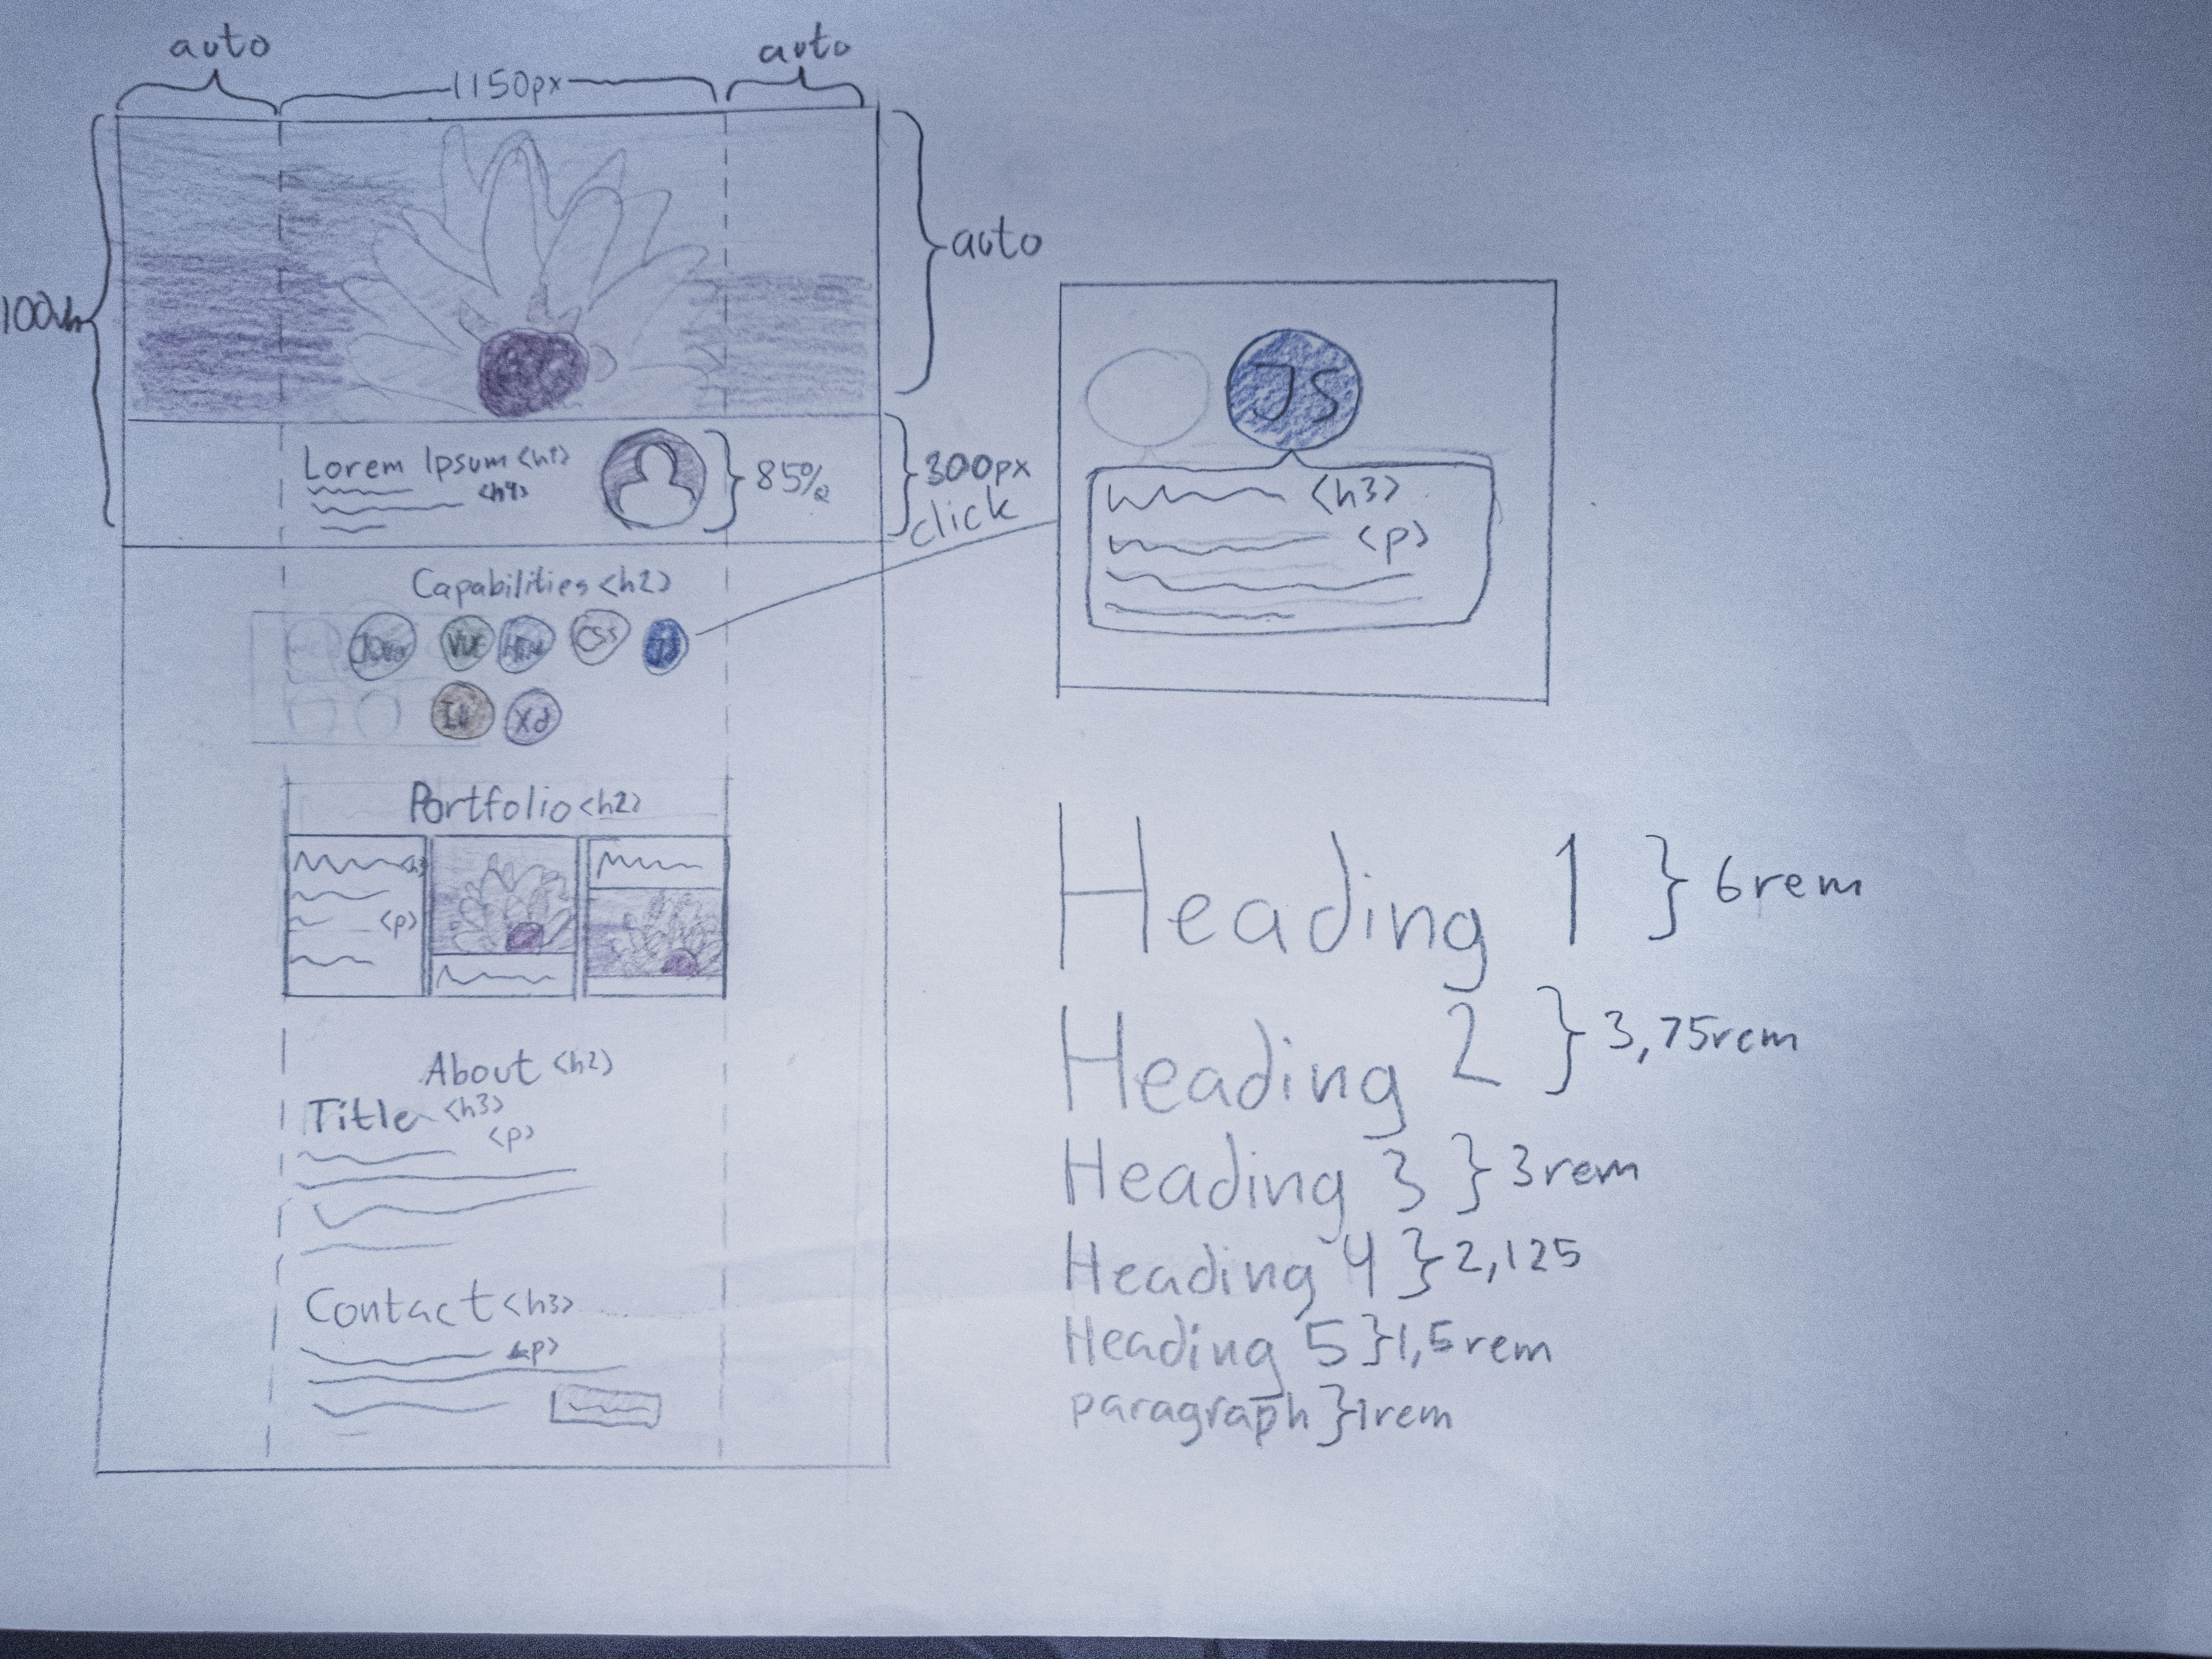 auto
1150px
auto
100vh
auto
Lorem Ipsum <h1>
<h4>
85%
300px
click
Capabilities <h2>
VUE
CSS
JS
Xd
JS
<h3>
<p>
Portfolio <h2>
<h3
<p>
About <h2>
Title <h3>
<p>
Contact <h3>
<p>
Heading 1 } 6rem
Heading 2 } 3,75rem
Heading 3 } 3rem
Heading 4 } 2,125
Heading 5 } 1,5rem
paragraph } 1rem